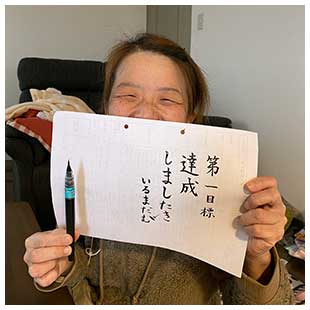 第一目標
達成
しましたき
いるまだむ